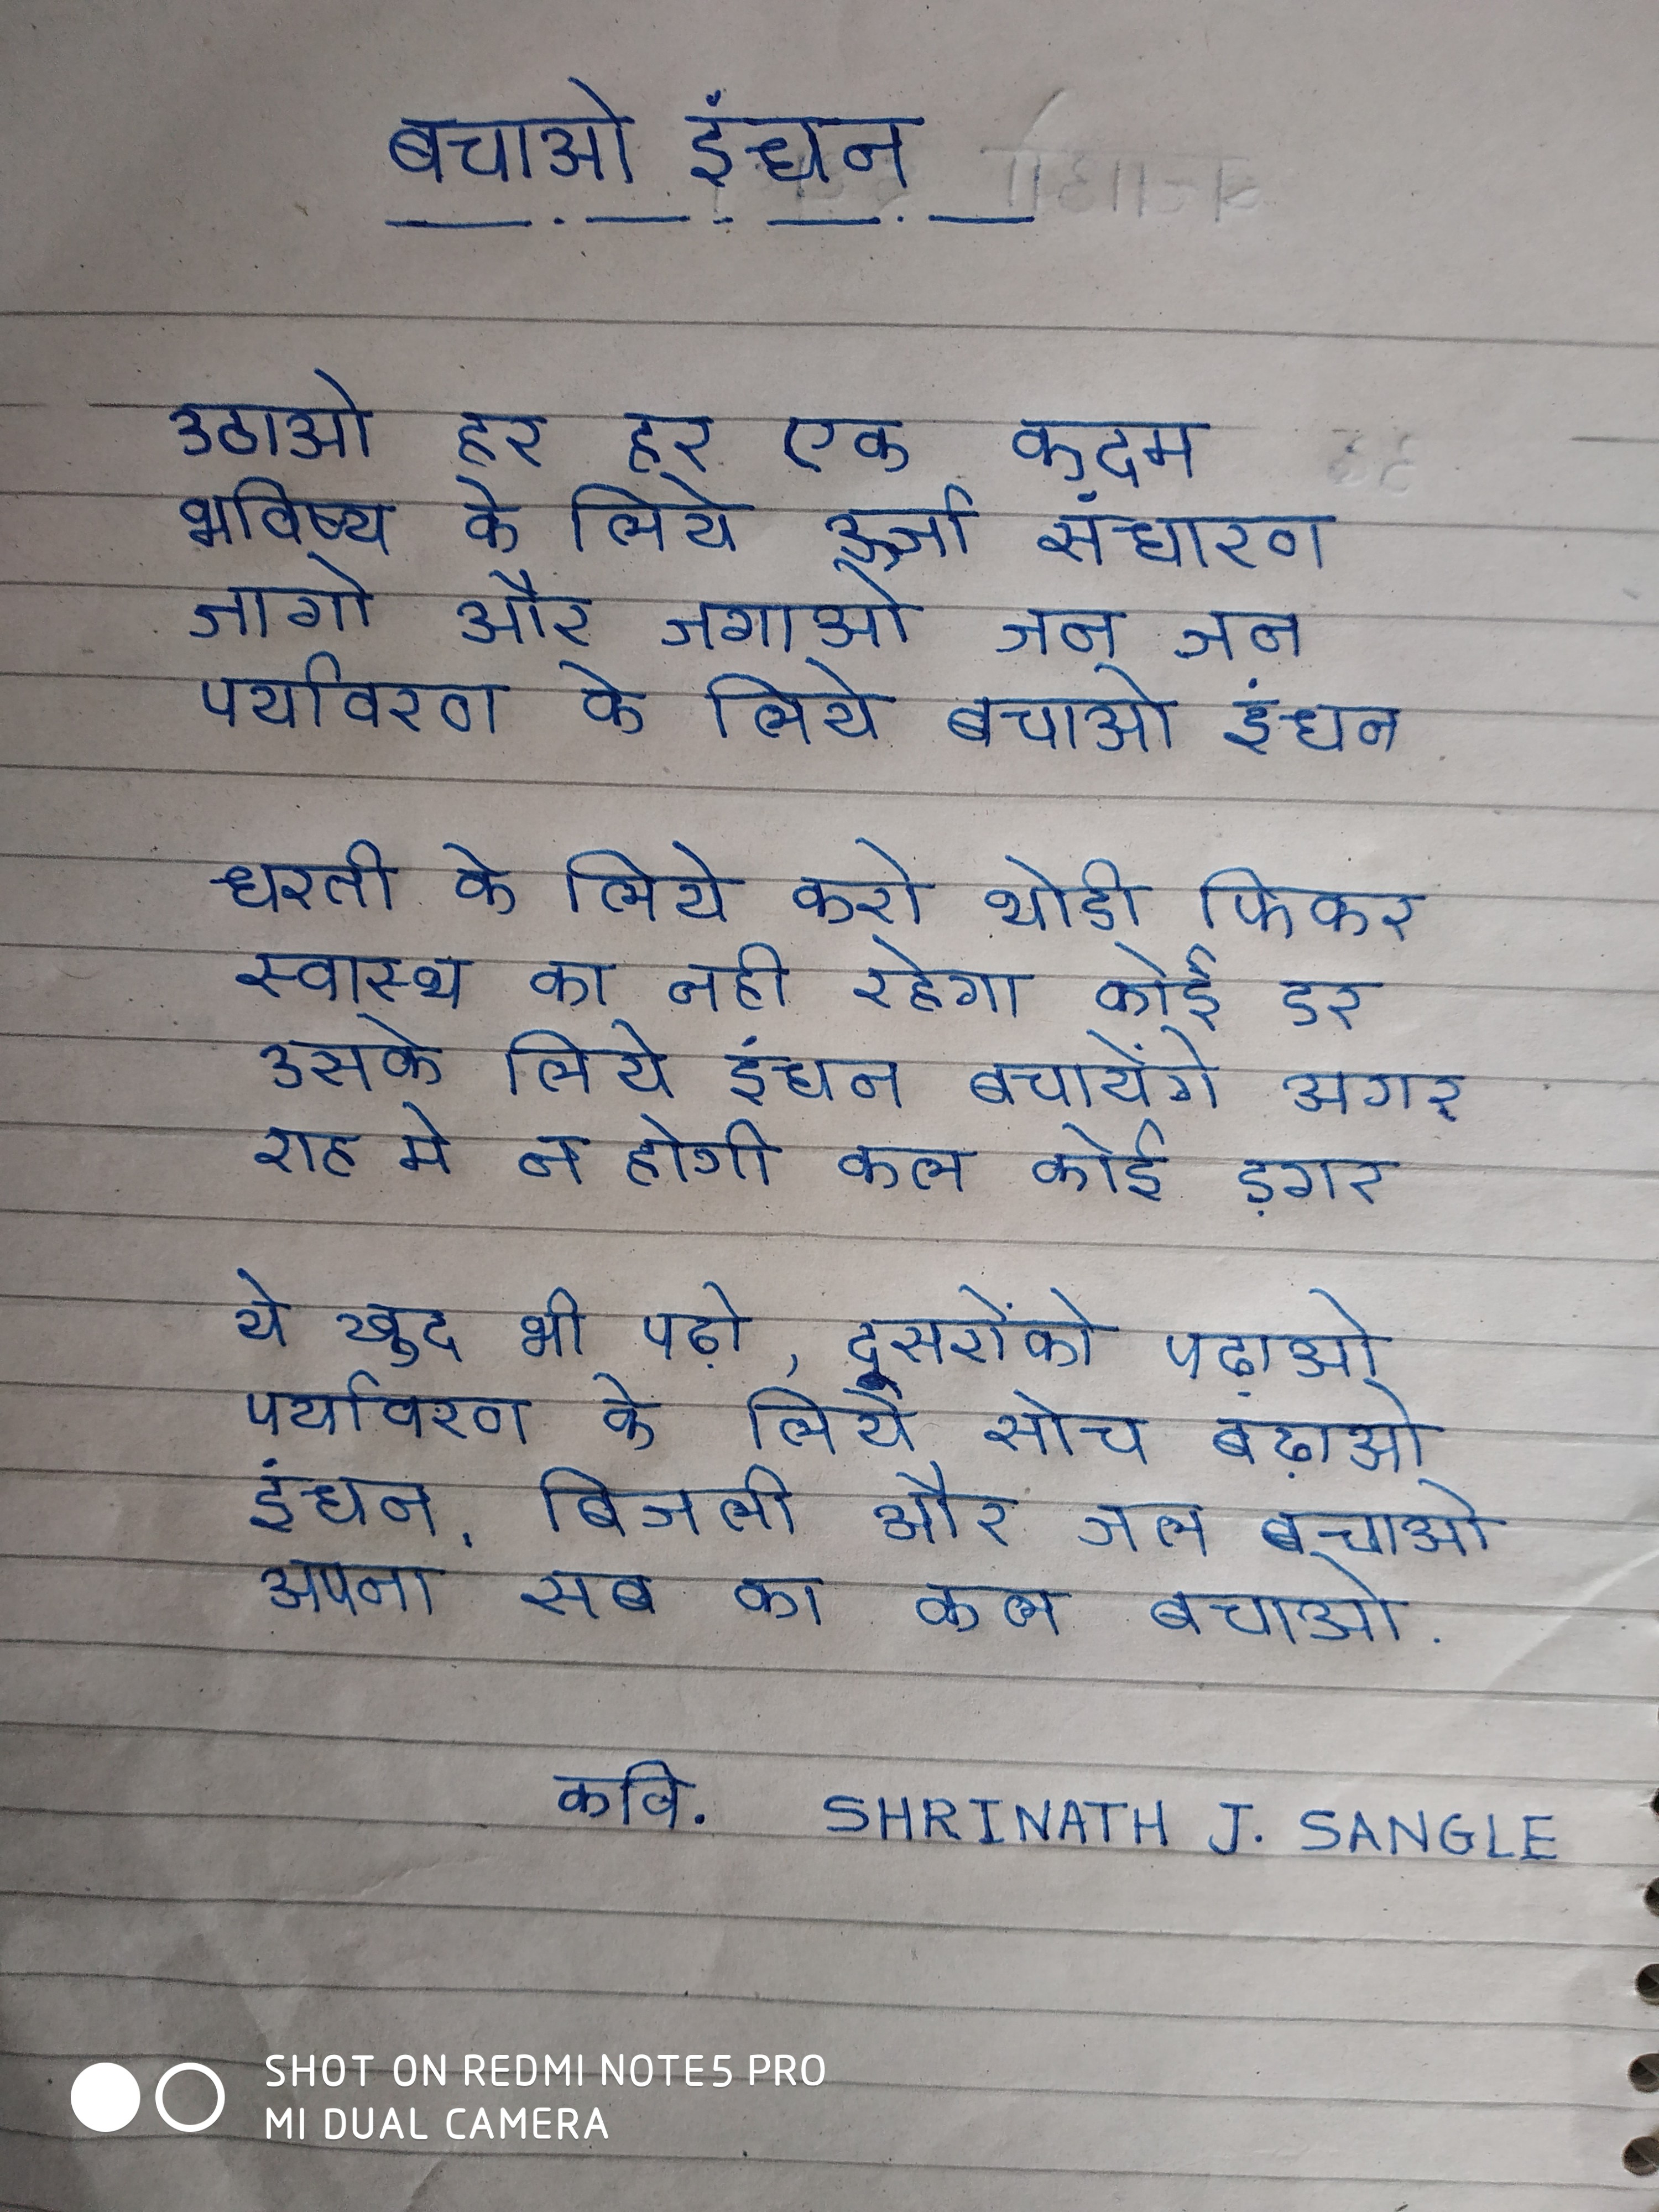 बचाओ इंधन
उठाओ हर हर एक कदम
भविष्य के लिये ऊर्जा संधारण
जागो और जगाओ जन जन
पर्यावरण के लिये बचाओ इंधन
धरती के लिये करो थोडी फिकर
स्वास्थ का नही रहेगा कोई डर
उसके लिये इंधन बचायेंगे अगर
राह मे न होगी कल कोई ड़गर
ये खुद भी पढ़ो, दूसरोंको पढ़ाओ
पर्यावरण के लिये सोच बढ़ाओ
इंधन, बिजली और जल बचाओ
अपना सब का कल बचाओ.
कवि. SHRINATH J. SANGLE
SHOT ON REDMI NOTE5 PRO
MI DUAL CAMERA